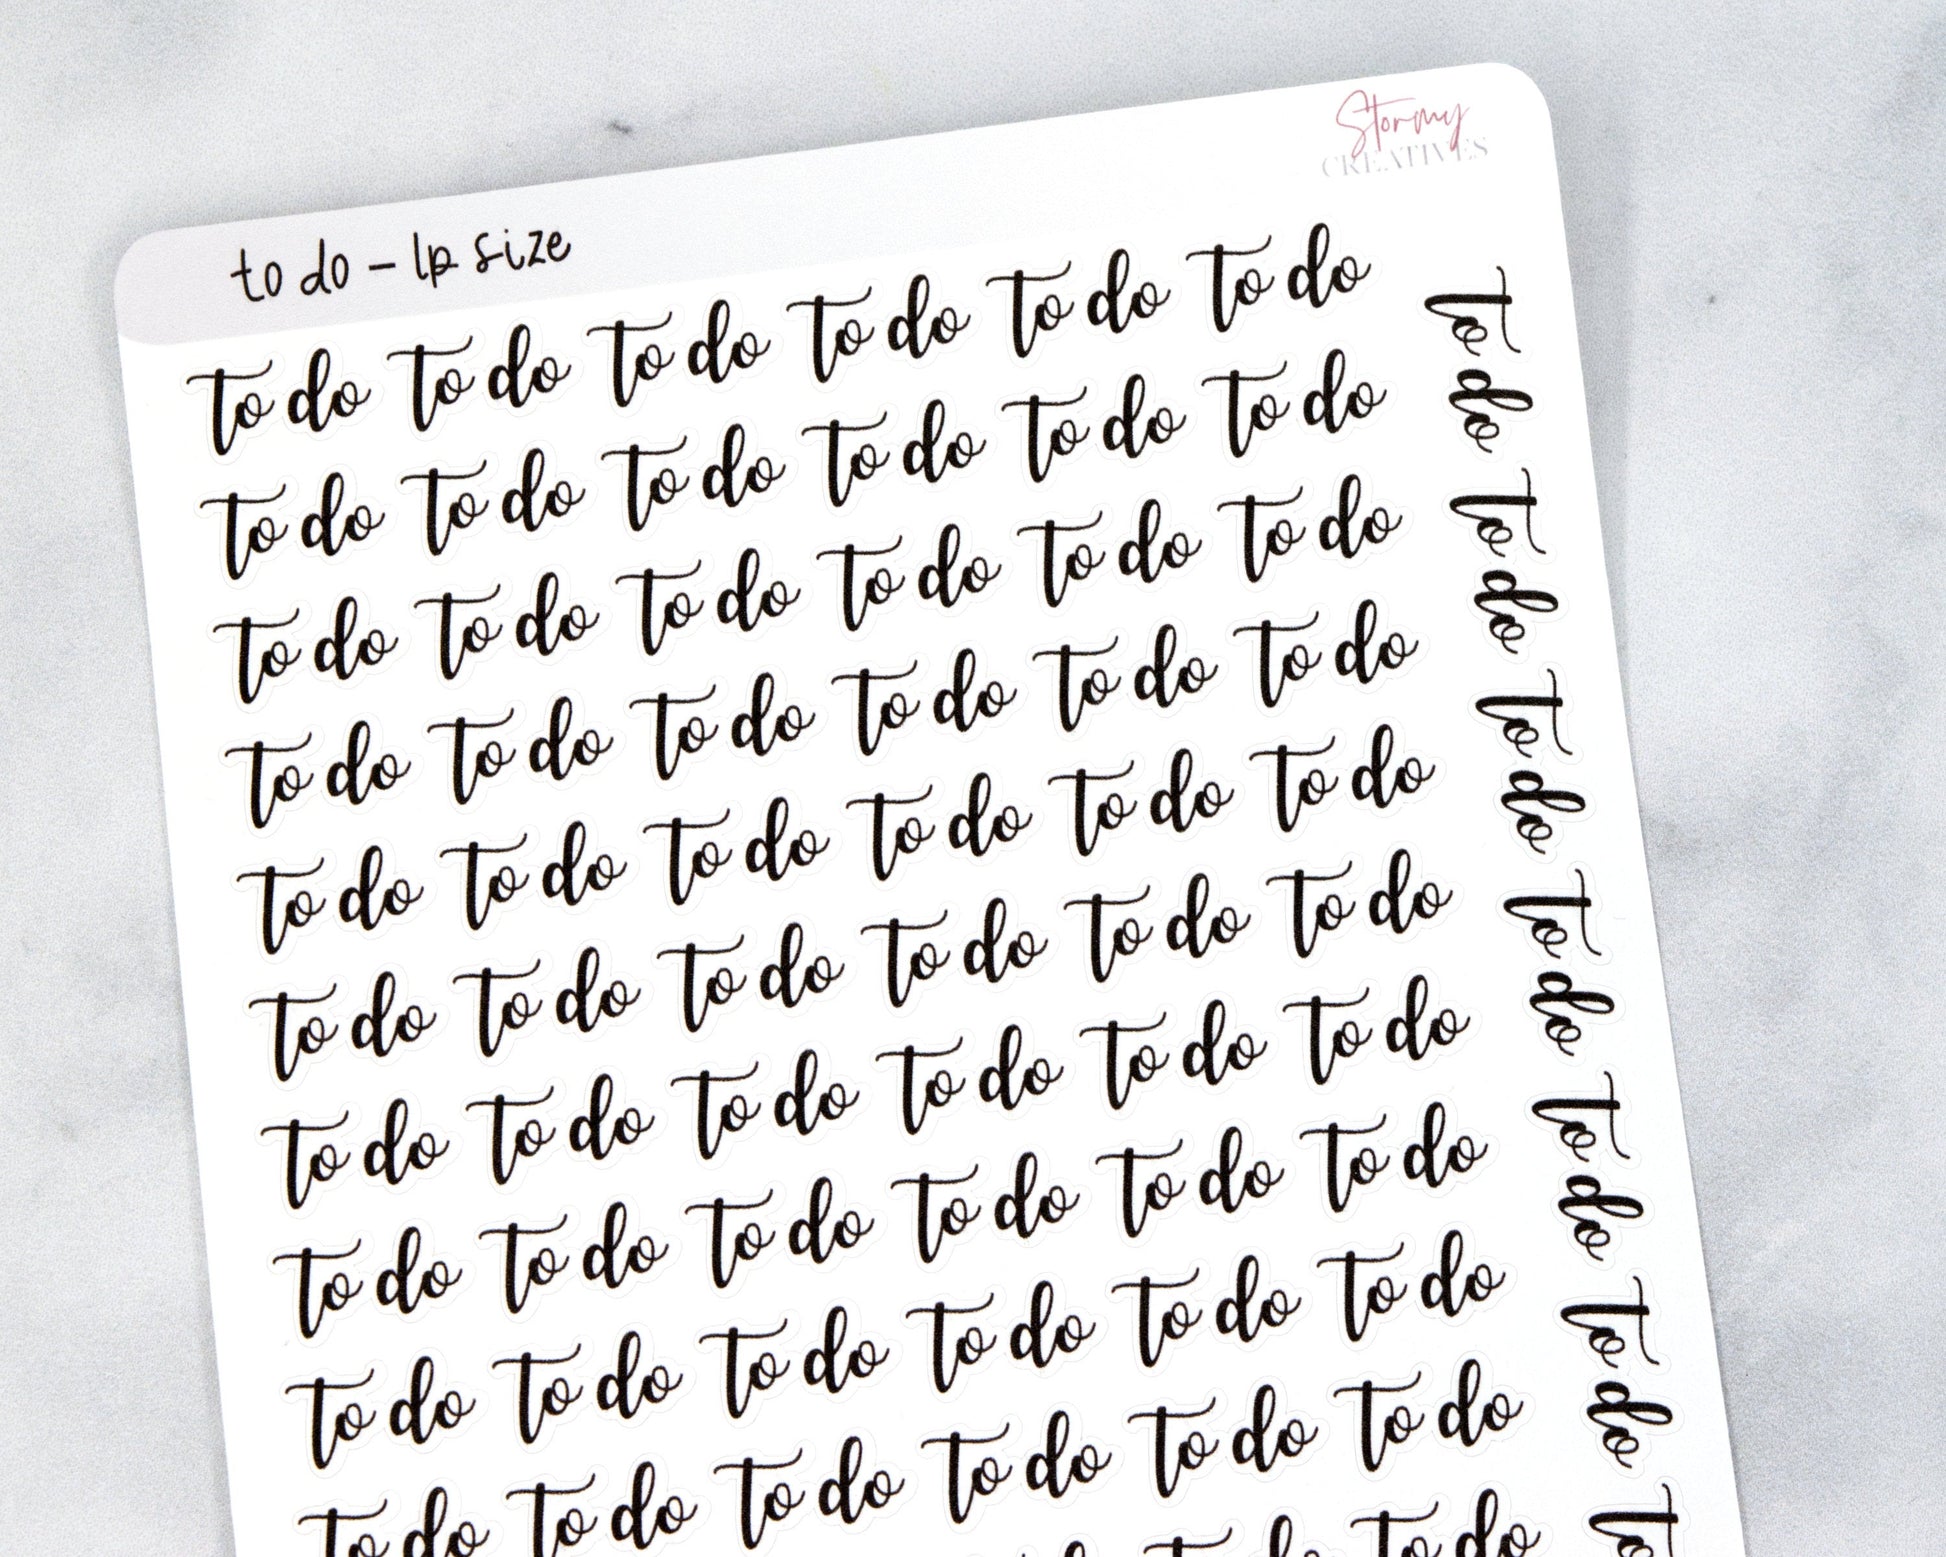 to do - lp size
Stormy
CREATIVES
to do to do to do to do to do to do
to do to do to do to do to do to do
to do to do to do to do to do to do
to do to do to do to do to do to do
to do to do to do to do to do to do
to do to do to do to do to do to do
to do to do to do to do to do to do
to do to do to do to do to do to do
to do to do to do to do to do to do
to do to do to do to do to do to do
to do
to do
to do
to do
to do
to do
to do
to